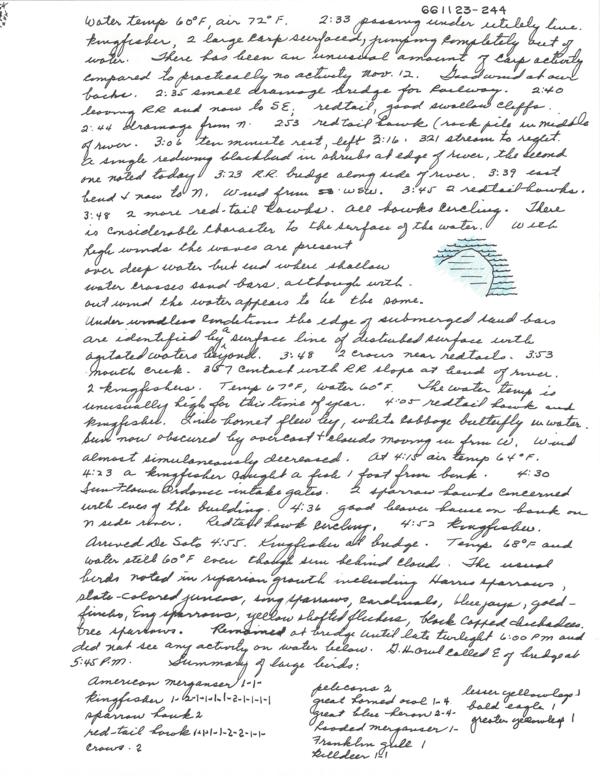 661123-244
Water temp 60°F, air 72°F. 2:33 passing under utility line.
Kingfisher, 2 large carp surfaced, jumping completely out of
water. There has been an unusual amount of carp activity
compared to practically no activity Nov. 12. Good wind at our
backs. 2:35 small drainage bridge for Railway. 2:40
leaving RR and now to SE, redtail, good swallow cliffs.
2:44 drainage from N. 253 redtail hawk (rock pile in middle
of river. 3:06 ten minute rest, left 3:16. 321 stream to right.
A single redwing blackbird in shrubs at edge of river, the second
one noted today. 3:23 RR. bridge along side of river. 3:39 east
bend & now to N. Wind from WSW. 3:45 2 redtail hawks.
3:48 2 more red-tail hawks. All hawks circling. There
is considerable character to the surface of the water. With
high winds the waves are present
over deep water but end where shallow
water crosses sand bars, although with-
out wind the water appears to be the same.
Under windless conditions the edge of submerged sand bars
are identified by a surface line of disturbed surface with
agitated waters beyond. 3:48 2 crows near redtails. 3:53
mouth creek. 357 contact with RR slope at bend of river.
2 kingfishers. Temp 67°F, water 60°F. The water temp is
unusually high for this time of year. 4:05 redtail hawk and
kingfisher. Live hornet flew by, white cabbage butterfly in water.
Sun now obscured by overcast & clouds moving in from W. Wind
almost simultaneously decreased. At 4:15 air temp 64°F.
4:23 a kingfisher caught a fish 1 foot from bank. 4:30
Sun Flower Ordance intake gates. 2 sparrow hawks concerned
with eves of the building. 4:36 good beaver house on bank on
N side river. Redtail hawk circling, 4:52 kingfisher.
Arrived De Soto 4:55. Kingfisher at bridge. Temp 68°F and
water still 60°F even though sun behind clouds. The usual
birds noted in riparian growth including Harris sparrows,
slate-colored juncos, song sparrows, cardinals, bluejays, gold-
finches, Eng sparrows, yellow shafted flickers, black capped chickadees,
tree sparrows. Remained at bridge until late twilight 6:00 PM and
did not see any activity on water below. G. H. owl called E of bridge at
5:45 P.M. Summary of large birds:
American merganser 1-1-
kingfisher 1-2-1-1-1-1-2-1-1-1-1
sparrow hawk 2
red-tail hawk 1-1-1-1-1-2-2-1-1-
crows - 2
pelicans 2
great horned owl 1-4
great blue heron 2-4-
hooded merganser 1-
Franklin gull 1
killdeer 1-1
lesser yellowlegs 1
bald eagle 1
greater yellowlegs 1